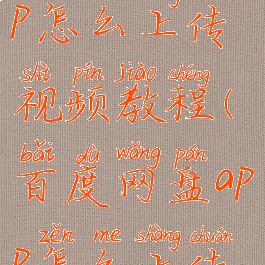 P怎么上传
shì pín jiào chéng
视频教程(
bǎi dù wǎng pán
百度网盘ap
zěn me shàng chuán
P怎么上传